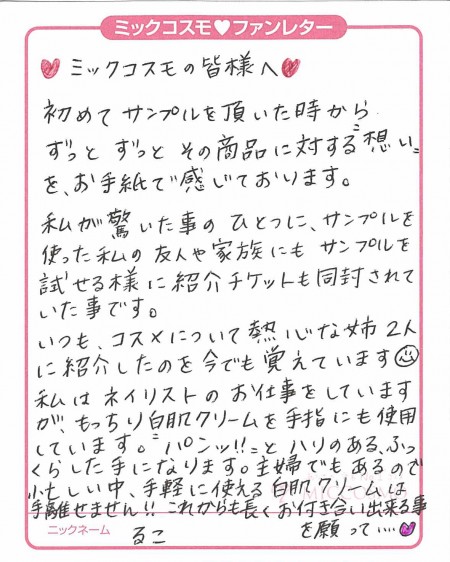 ミックコスモ♥ファンレター
♥ミックコスモの皆様へ♥
初めてサンプルを頂いた時から
ずっと ずっと その商品に対する〝想い〟
を、お手紙で感じております。
私が驚いた事の ひとつに、サンプルを
使った私の友人や家族にも サンプルを
試せる様に紹介チケットも同封されて
いた事です。
いつも、コスメについて熱心な姉2人
に紹介したのを今でも覚えています☺
私はネイリストのお仕事をしています
が、もっちり白肌クリームを手指にも使用
しています。〝パンッ!!〟と ハリのある、ふっ
くらした手になります。主婦でもあるので
忙しい中、手軽に使える白肌クリームは
手離せません!! これからも長くお付き合い出来る事
を願って…♥
ニックネーム るこ